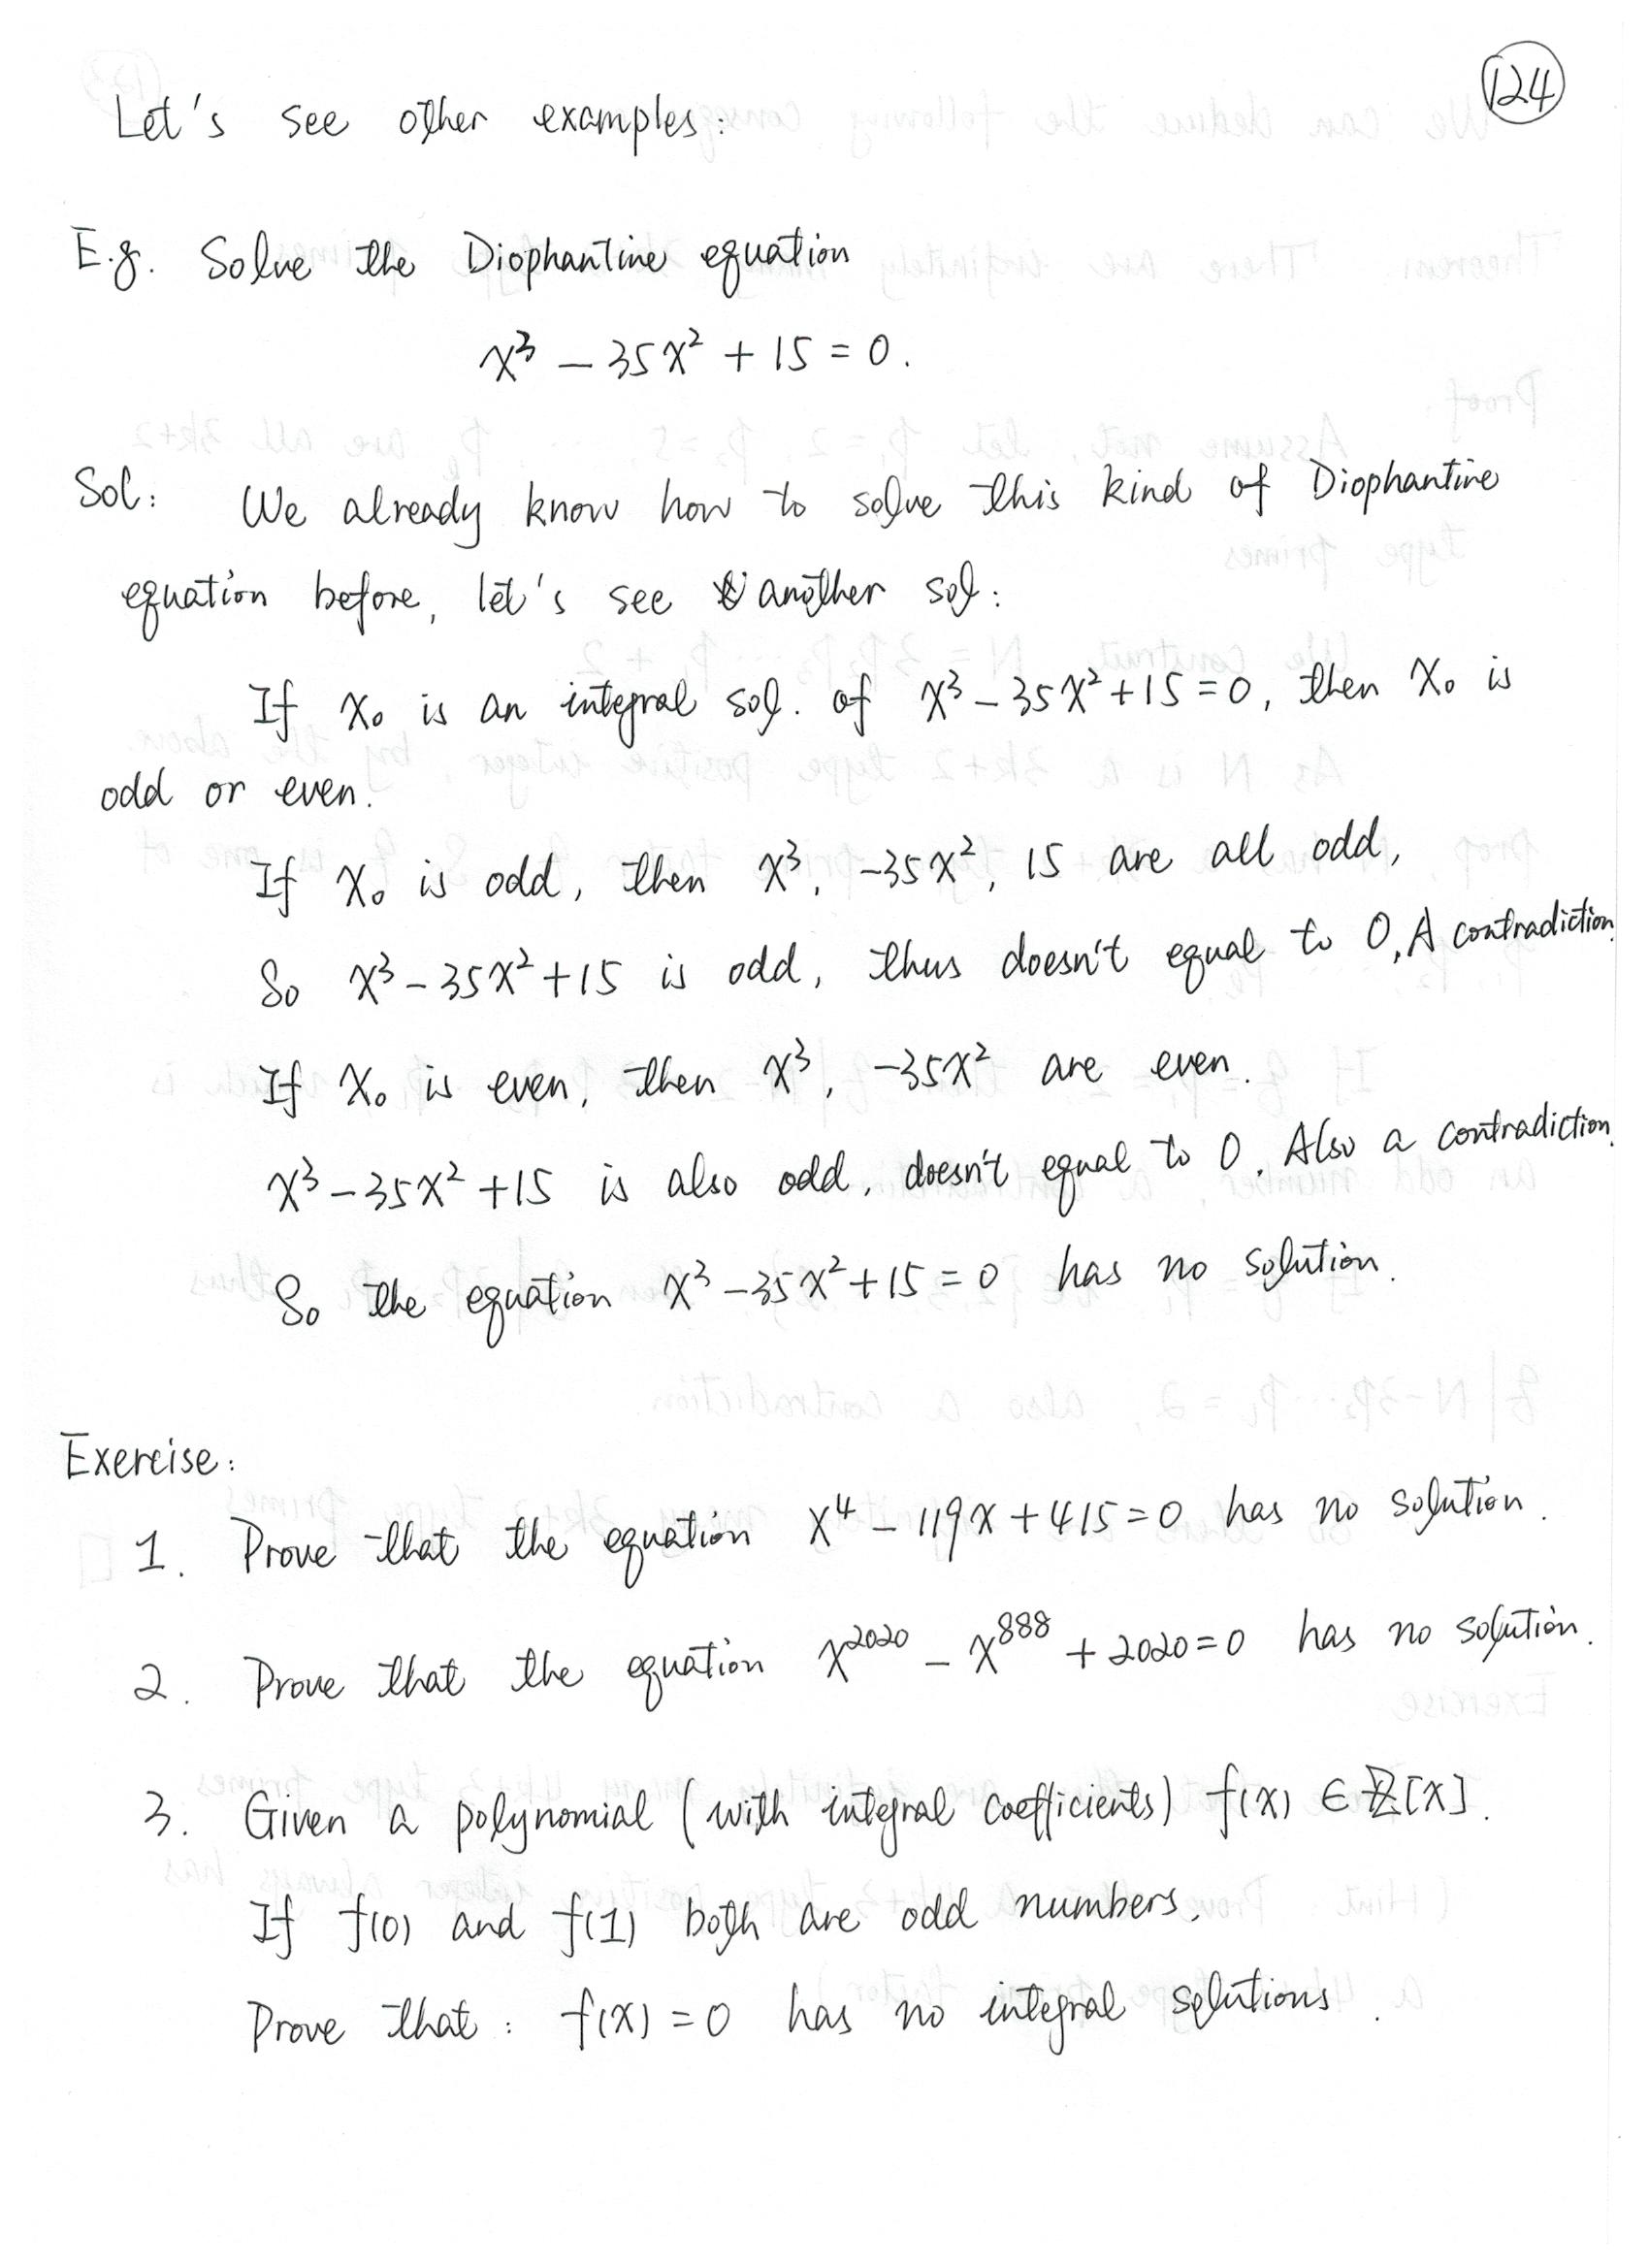 124
Let's see other examples:
E.g. Solve the Diophantine equation
x³ - 35x² + 15 = 0.
Sol: We already know how to solve this kind of Diophantine
equation before, let's see another sol:
If x₀ is an integral sol. of x³ - 35x² + 15 = 0, then x₀ is
odd or even.
If x₀ is odd, then x³, -35x², 15 are all odd,
So x³ - 35x² + 15 is odd, thus doesn't equal to 0, A contradiction.
If x₀ is even, then x³, -35x² are even.
x³ - 35x² + 15 is also odd, doesn't equal to 0. Also a contradiction.
So the equation x³ - 35x² + 15 = 0 has no solution.
Exercise:
1. Prove that the equation x⁴ - 119x + 415 = 0 has no solution.
2. Prove that the equation x²⁰²⁰ - x⁸⁸⁸ + 2020 = 0 has no solution.
3. Given a polynomial (with integral coefficients) f(x) ∈ ℤ[x].
If f(0) and f(1) both are odd numbers.
Prove that: f(x) = 0 has no integral solutions.